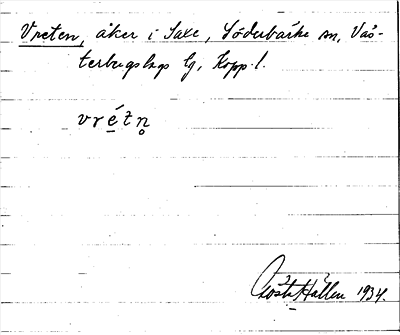 Vreten, åker i Saxe, Söderbärke sn, Väs-
terbergslags lg, Kopp. l.
vrétn̥
Gösta Hallén 1934.